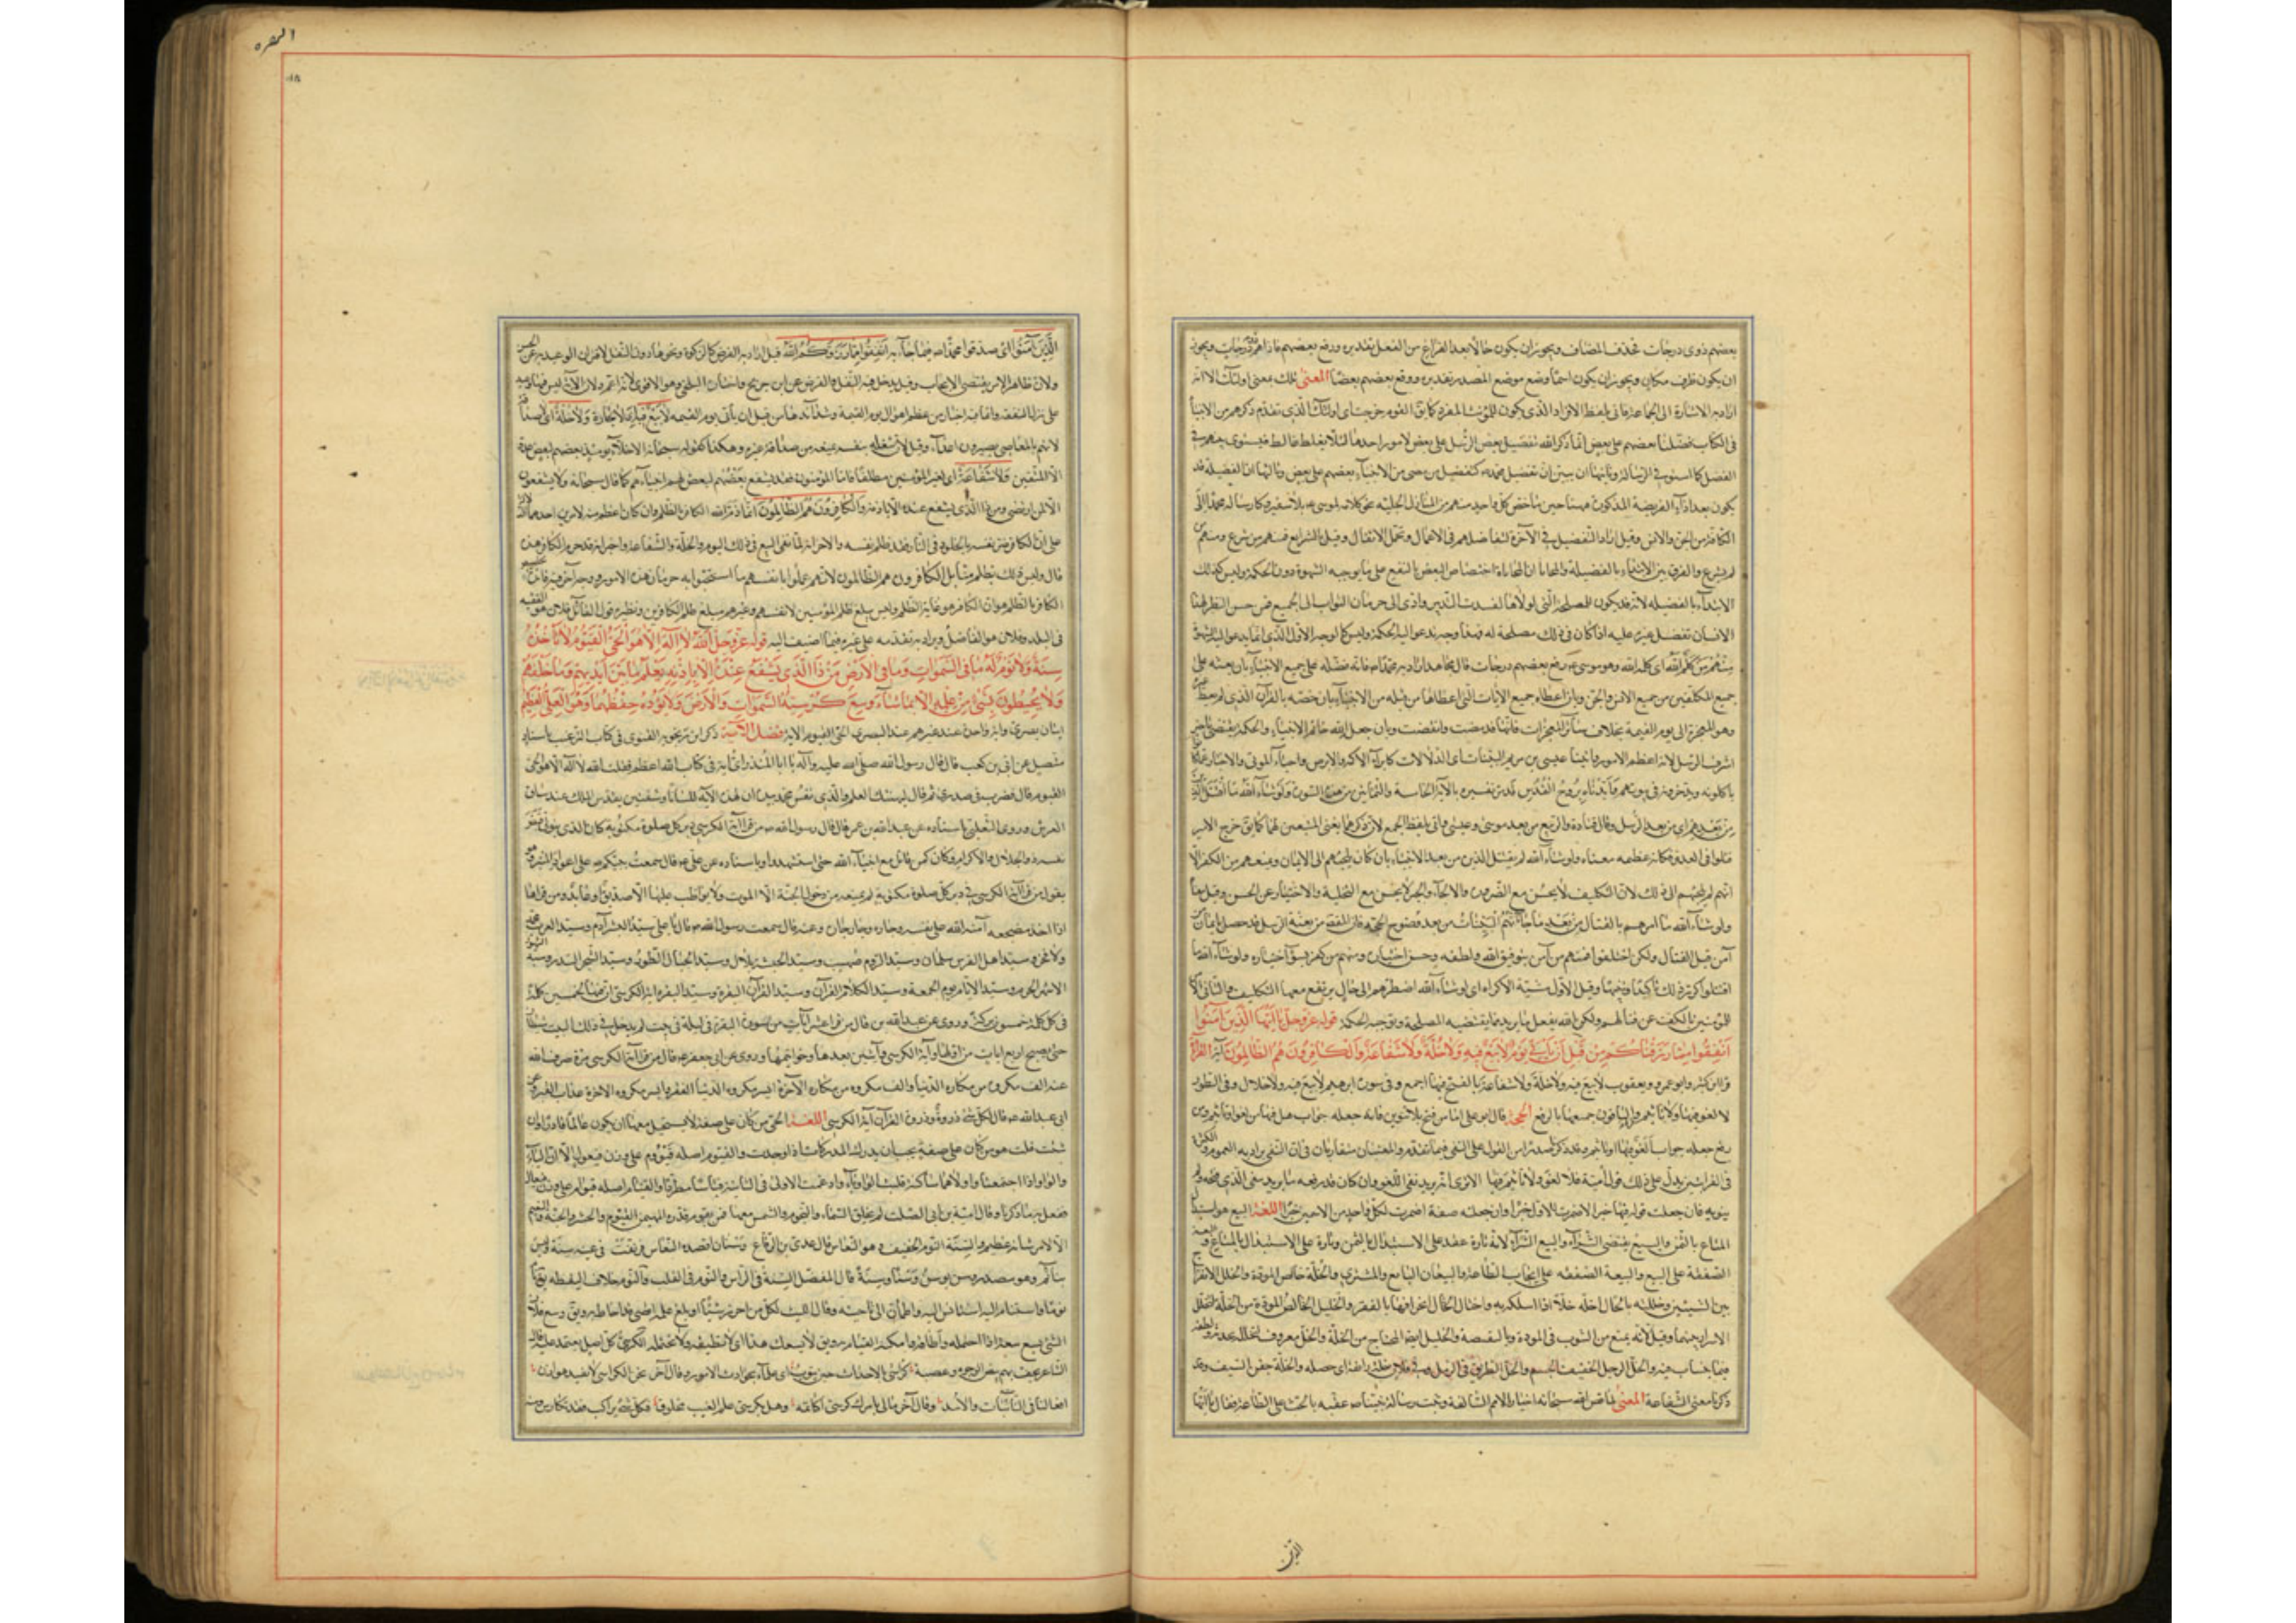 بعضهم ذوى درجات فحذف المضاف ويجوز ان يكون حالا بعد الفراغ من الفعل تقديره ورفع بعضهم فاذا هم ذو درجات ويجوز
ان يكون ظرف مكان ويجوز ان يكون اسما وضع موضع المصدر تقديره ورفع بعضهم بعضا المعنى تلك بمعنى اولئك الا انه
اراد به الاشارة الى الجماعة فاتى بلفظ الافراد الذى يكون للمؤنث المفرد كما يق القوم خرجت اى اولئك الذى تقدم ذكرهم من الانبياء
فى الكتاب فضلنا بعضهم على بعض انما ذكر الله تفضيل بعض الرسل على بعض لامور احدها لئلا يغلط غالط فيسوى بينهم فى
الفضل كما استووا فى الرسالة وثانيها ان يبين ان تفضيل محمد كتفضيل من مضى من الانبياء بعضهم على بعض وثالثها ان الفضيلة قد
يكون بعد اداء الفريضة المذكورة هيهنا حين ما خص كل واحد منهم من المنازل الجليلة نحو كلامه لموسى ع بلا سفير وكارساله محمدا الى
الكافة من الجن والانس وقيل اراد التفضيل فى الآخرة لتفاضلهم فى الاعمال وتحمل الاثقال وقيل بالشرايع فمنهم من شرع ومنهم من
لم يشرع والفرق بين الابتداء بالفضيلة والمحاباة ان المحاباة اختصاص البعض بالنفع على ما يوجبه الشهوة دون الحكمة وليس كذلك
الابتداء بالفضيلة لانه قد يكون المصلحة التى لولاها لفسد التدبير وادى الى حرمان الثواب الجميع فمن حسن النظر لهذا
الانسان تفضيل غيره عليه اذا كان فى ذلك مصلحة له فهذا وجه تدعو اليه الحكمة وليس كالوجه الاول الذى انما يدعو اليه الشهوة
منهم من كلم الله اى كلمه الله وهو موسى ع ورفع بعضهم درجات قال مجاهد اراد به محمدا ص فانه فضله على جميع الانبياء بان بعثه على
جميع المكلفين من جميع الانس والجن وبان اعطاه جميع الايات التى اعطاها من قبله من الانبياء وبان خصه بالقرآن الذى لم يعط
وهو المعجزة الى يوم القيمة بخلاف سائر المعجزات فانها قد مضت وانقضت وبان جعل الله خاتم الانبياء والحكمة يقتضى تأخير
اشرف الرسل لاعظم الامور وآتينا عيسى بن مريم البينات اى الدلالات كابراء الاكمه والابرص واحياء الموتى والاخبار عما
ياكلونه ويدخرونه فى بيوتهم وايدناه بروح القدس قد مر تفسيره بالآية الخامسة والثمانين من هذه السورة ولو شاء الله ما اقتتل الذين
من بعدهم اى من بعد الرسل وقال قتادة والربيع من بعد موسى وعيسى واتى بلفظ الجمع لان ذكرهما يغنى عن المتبعين لهما كما يق خرج الامير
فنكوا فى العدو نكاية عظيمة معناه ولو شاء الله لم يقتتل الذين من بعد الانبياء بان كان يلجئهم الى الايمان ويمنعهم من الكفر الا
انه لم يلجئهم الى ذلك لان التكليف لا يحسن مع الضرورة والالجاء والجزاء لا يحسن مع التخلية والاختيار عن الحسن وقيل معناه
ولو شاء الله ما امرهم بالقتال من بعد ما جاءتهم البينات من بعد وضوح الحجة فان المقصد من بعثة الرسل قد حصل بايمان من
آمن قبل القتال ولكن اختلفوا فمنهم من آمن بتوفيق الله ولطفه وحسن اختياره ومنهم من كفر بسوء اختياره ولو شاء الله ما
اقتتلوا كرر ذلك تأكيدا وتنبيها وقيل الاول مشية الاكراه اى لو شاء الله اضطرهم الى حال يرتفع معها التكليف والثانى الامر
للمؤمنين بالكف عن قتالهم ولكن الله يفعل ما يريد ما يقتضيه المصلحة وتوجبه الحكمة قوله عز وجل يا ايها الذين آمنوا
انفقوا مما رزقناكم من قبل ان ياتى يوم لا بيع فيه ولا خلة ولا شفاعة والكافرون هم الظالمون آية القراءة
قرا ابن كثير وابو عمرو ويعقوب لا بيع فيه ولا خلة ولا شفاعة بالفتح فيها اجمع وفى سورة ابرهيم لا بيع فيه ولا خلال وفى الطور
لا لغو فيها ولا تاثيم وقرا الباقون جميعها بالرفع الحجة قال ابو على اما من فتح بلا تنوين فانه جعله جواب هل فيها من لغو او تاثيم ومن
رفع جعله جواب ا لغو فيها او تاثيم وقد ذكرنا صدرا من القول على النفى فيما تقدم والمعنيان متقاربان فى ان النفى يراد به العموم والكثرة
فى القراءتين يدل على ذلك قول امية فلا لغو ولا تاثيم فيها الا ترى انه يريد نفى اللغو وان كان قد رفعه ما يريد بنفى الذى فتحه ولم
ينونه فان جعلت قوله فيها خبرا اضمرت للاول خبرا وان جعلته صفة اضمرت لكل واحد من الاسمين خبرا اللغة البيع هو استبدال
المتاع بالثمن والبيع نقيض الشراء والبيع الشراء لانه تارة عقد على الاستبدال بالثمن وتارة على الاستبدال بالمتاع والبيعة
الصفقة على البيع والبيعة الصفقة على ايجاب الطاعة والبيعان البايع والمشترى والخلة خالص المودة والخلل الانفراج
بين الشيئين وخللته بالخلال اخله خلا اذا شككته به واختلال الحال انحرافها بالفقر والخليل الخالص المودة من الخلة لتخلل
الاسرار بينهما وقيل لانه يمنع من الشوب فى المودة بالنقيصة والخليل ايضا المحتاج من الخلة والخل معروف لتخلله بحدته ولطفه
فيما ينساب فيه والخل الرجل الخفيف الجسم والخل الطريق فى الرمل وفى فلان خلة رائقة اى خصلة والخلة جفن السيف وقد
ذكرنا معنى الشفاعة المعنى لما قص الله سبحانه اخبار الامم السالفة وثبت رسالة نبينا ص عقبه بالحث على الطاعة فقال يا ايها
الذين
البقره
الذين آمنوا اى صدقوا محمدا ص فيما جاء به انفقوا مما رزقكم الله قيل اراد به الفرض كالزكوة ونحوها دون النفل لاقتران الوعيد به عن الحسن
ولان ظاهر الامر يقتضى الايجاب وقيل يدخل فيه النفل والفرض عن ابن جريج واختاره البلخى وهو الاقوى لانه اعم ولان الآية ليس فيها وعيد
على ترك النفقة وانما فيه اخبار عن عظم اهوال يوم القيمة وشدائدها من قبل ان ياتى يوم القيمه لا بيع فيه اى لا تجارة ولا خلة اى لا صداقة
لانهم بالمعاصى يصيرون اعداء وقيل لان شغله بنفسه يمنعه من صداقة غيره وهكذا كقوله سبحانه الاخلاء يومئذ بعضهم لبعض عدو
الا المتقين ولا شفاعة اى لغير المؤمنين مطلقا فاما المؤمنون فقد يشفع بعضهم لبعض ويشفع لهم انبياءهم كما قال سبحانه ولا يشفعون
الا لمن ارتضى ومن ذا الذى يشفع عنده الا باذنه والكافرون هم الظالمون انما ذم الله الكافر بالظلم وان كان اعظم منه لامرين احدهما الدلالة
على ان الكافر ضر نفسه بالخلود فى النار فقد ظلم نفسه والاخر انه لما نفى البيع فى ذلك اليوم والخلة والشفاعة واخبر انه قد حرم الكافر هذه
قال وليس ذلك بظلم منا بل الكافرون هم الظالمون لانهم عملوا بانفسهم ما استحقوا به حرمان هذه الامور ووجه آخر فى تخصيص
الكافر بالظلم هو ان الكافر هو غاية الظلم وليس يبلغ ظلم المؤمنين لانفسهم وغيرهم مبلغ ظلم الكافرين ونظيره قول القائل فلان هو الفقيه
فى البلد وفلان هو الفاضل ويراد به تقدمه على غيره فيما اضيف اليه قوله عز وجل الله لا اله الا هو الحى القيوم لا تأخذه
سنة ولا نوم له ما فى السموات وما فى الارض من ذا الذى يشفع عنده الا باذنه يعلم ما بين ايديهم وما خلفهم
ولا يحيطون بشئ من علمه الا بما شاء وسع كرسيه السموات والارض ولا يؤده حفظهما وهو العلى العظيم
ايتان بصرى وآية واحدة عند غيرهم عند البصرى الحى القيوم الاية فضل الآية ذكر ابن زنجويه الفسوى فى كتاب الترغيب باسناد
متصل عن ابى بن كعب قال قال رسول الله صلى الله عليه وآله يا ابا المنذر اى آية فى كتاب الله اعظم قلت الله لا اله الا هو الحى
القيوم قال فضرب فى صدرى ثم قال ليهنئك العلم والذى نفس محمد بيده ان لهذه الآية للسانا وشفتين يقدس الملك عند ساق
العرش وروى الثعلبى باسناده عن عبد الله بن عمر قال قال رسول الله ص من قرا آية الكرسى دبر كل صلوة مكتوبة كان الذى يتولى قبض
نفسه ذو الجلال والاكرام وكان كمن قاتل مع انبياء الله حتى استشهد وباسناده عن على ع قال سمعت نبيكم ص على اعواد المنبر وهو
يقول من قرا آية الكرسى فى دبر كل صلوة مكتوبة لم يمنعه من دخول الجنة الا الموت ولا يواظب عليها الا صديق او عابد ومن قراها
اذا اخذ مضجعه آمنه الله على نفسه وجاره وجار جاره وعنه قال سمعت رسول الله ص قال يا على سيد البشر آدم وسيد العرب محمد
ولا فخر وسيد اهل الفرس سلمان وسيد الروم صهيب وسيد الحبشة بلال وسيد الجبال الطور وسيد الشجر السدر وسيد الشهور
الاشهر الحرم وسيد الايام يوم الجمعة وسيد الكلام القرآن وسيد القرآن البقرة وسيد البقرة آية الكرسى ان فيها لخمسين كلمة
فى كل كلمة خمسون بركة وروى عن عبد الله بن قال من قرا عشر آيات من سورة البقرة فى ليلة فى بيت لم يدخل فى ذلك البيت شيطان
حتى يصبح اربع ايات من اولها وآية الكرسى وآيتين بعدها وخواتيمها وروى عن ابى جعفر ع قال من قرا آية الكرسى مرة صرف الله
عنه الف مكروه من مكاره الدنيا والف مكروه من مكاره الآخرة ايسر مكروه الدنيا الفقر وايسر مكروه الاخرة عذاب القبر وعن
ابى عبد الله ع قال لكل شئ ذروة وذروة القرآن آية الكرسى اللغة الحى من كان على صفة لا يستحيل معها ان يكون عالما قادرا وان
شئت قلت هو من كان على صفة يجب ان يدرك المدركات اذا وجدت والقيوم اصله قيووم على وزن فيعول الا ان الياء
والواو اذا اجتمعتا واولاهما ساكنة قلبت الواو ياء وادغمت الاولى فى الثانية قياسا مطردا والقيام اصله قيوام على وزن فيعال
ففعل به ما ذكرنا وقال امية بن ابى الصلت لم يخلق السماء والنجوم والشمس معها قمر يقوم قدره المهيمن القيوم والحشر والجنة والنعيم
الا لامر شانه عظيم والسنة النوم الخفيف وهو النعاس قال عدى بن الرقاع وسنان اقصده النعاس فرنقت فى عينه سنة وليس
بنائم وهو مصدر وسن يوسن وسنا وسنة قال المفضل السنة فى الراس والنوم فى القلب والنوم خلاف اليقظة يق نام
نوما واستنام اليه استانس اليه واطمأن الى ناحيته وقال الليث لكل من احرز شيئا او بلغ علمه اقصى قد احاط به ويق وسع فلان
الشئ يسع سعة اذا احتمله واطاقه وامكنه القيام به ويق لا يسعك هذا اى لا تطيقه ولا تحتمله الكرسى كل اصل يعتمد عليه قال
الشاعر يحف بهم بيض الوجوه وعصبة كراسى الاحداث حين ينوب اى علماء بحوادث الامور وقال آخر نحن الكراسى لا تعد هوازن
افعالنا فى النائبات والاسد وقال آخر مالى بامرك كرسى اكاتمه وهل بكرسى علم الغيب مخلوق